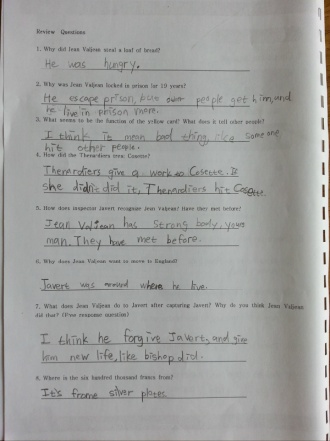 Review Questions
1. Why did Jean Valjean steal a loaf of bread?
He was hungry.
2. Why was Jean Valjean locked in prison for 19 years?
He escape prison, but other people get him, and
he live in prison more.
3. What seems to be the function of the yellow card? What does it tell other people?
I think is mean bad thing, like someone
hit other people.
4. How did the Thenardiers treat Cosette?
Thenardiers give a work to Cosette. If
she didn't did it, Thenardiers hit Cosette
5. How does inspector Javert recognize Jean Valjean? Have they met before?
Jean Valjean has strong body, young
man. They have met before.
6. Why does Jean Valjean want to move to England?
Javert was around where he live.
7. What does Jean Valjean do to Javert after capturing Javert? Why do you think Jean Valjean
did that? (Free response question)
I think he forgive Javert, and give
him new life, like bishop did.
8. Where is the six hundred thousand francs from?
It's frome silver plates